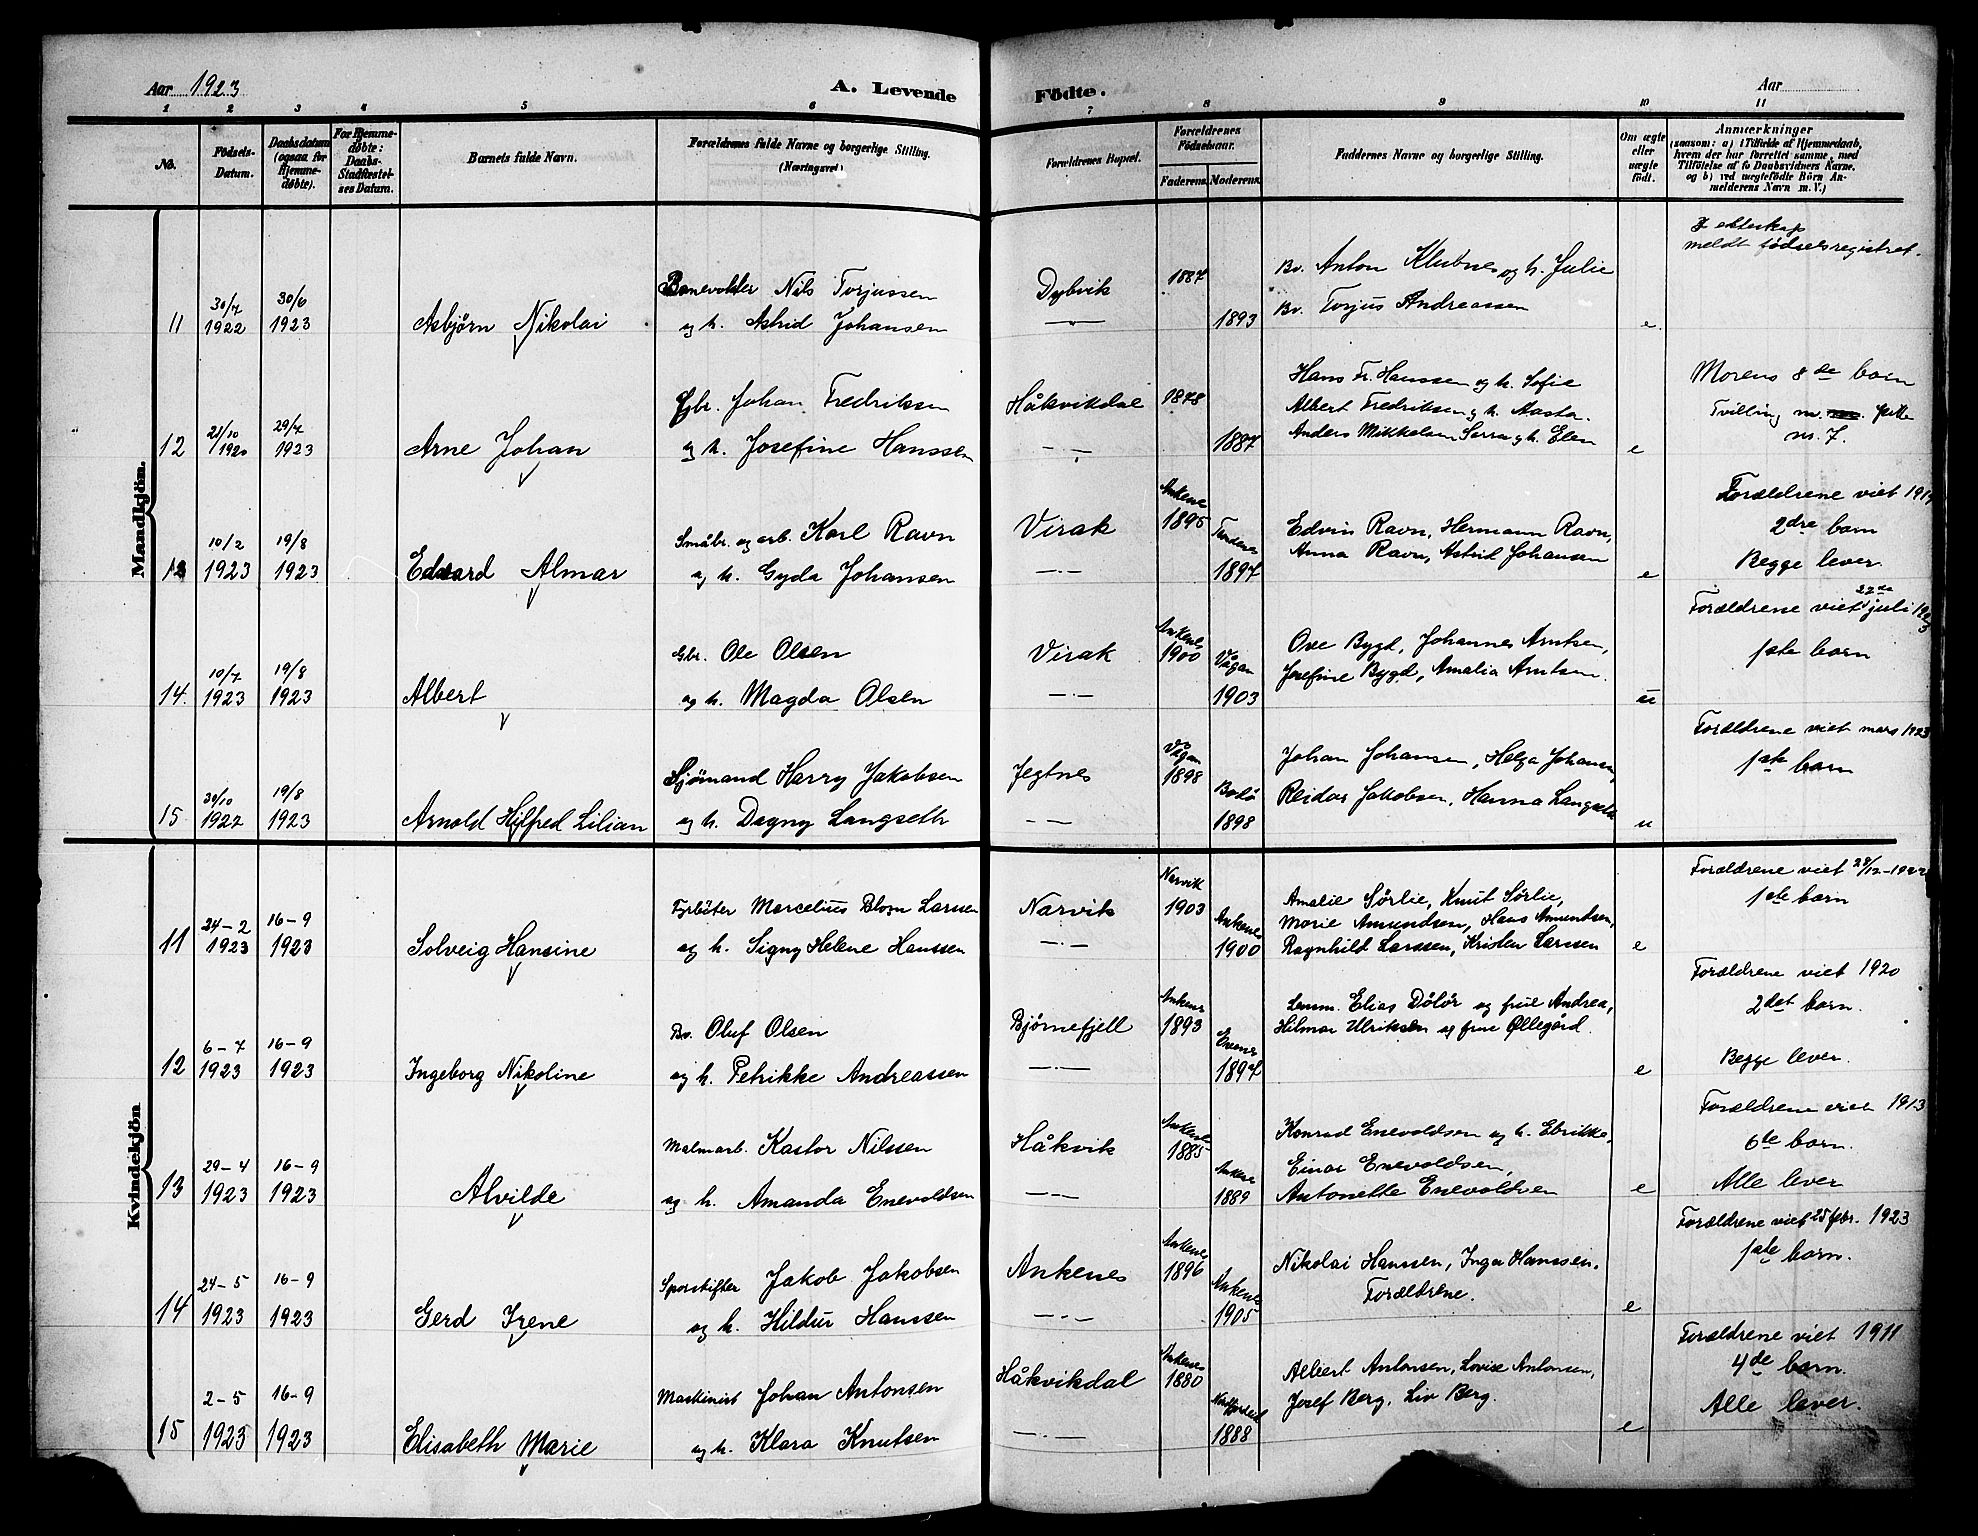 Aar 1923
A. Levende Födte.
Aar
1 2 3 4 5 6 7 8 9 10 11
No.
Födsels-Datum.
Daabsdatum (ogsaa for Hjemmedøbte).
For Hjemmedøbte: Daabs-Stadfæstelses Datum.
Barnets fulde Navn.
Forældrenes fulde Navne og borgerlige Stilling. (Næringsvei)
Forældrenes Bopæl.
Forældrenes Födselsaar.
Faderens. Moderens.
Faddernes Navne og borgerlige Stilling.
Om ægte eller uægte födt.
Anmærkninger
(saasom: a) i Tilfælde af Hjemmedaab, hvem der har forrettet samme, med Tilföielse af to Daabsvidners Navne, og b) ved uægtefödte Börn Anmelderens Navn m. V.)
Mandkjön.
11 30/7 1922 30/6 1923 Asbjörn Nikolai
Banevokter Nils Torjussen
og h. Astrid Johansen
Dybvik 1887 1893
Bv. Anton Klubnes og h. Julie
Bv. Torjus Andreassen
e.
meldt födselsregistret.
12 21/10 1920 29/7 1923 Arne Johan
Gbr. Johan Fredriksen
og h. Josefine Hanssen
Håkvikdal 1878 1887
Hans Fr. Hanssen og h. Sofie
Albert Fredriksen og h. Aasta.
Anders Mikkelsen Sarra og h. Elen
e
Morens 8de barn
Tvilling m. pike
nr. 7.
13 10/2 1923 19/8 1923 Edvard Almar
Småbr. og arb. Karl Ravn
og h. Gyda Johansen
Virak Ankenes 1895 1897
Edvin Ravn, Hermann Ravn,
Anna Ravn, Astrid Johansen
e
Forældrene viet 1919
2dre barn
Begge lever.
14. 10/7 1923 19/8 1923 Albert
Gbr. Ole Olsen
og h. Magda Olsen
Virak Ankenes 1900 Vågan 1903
Ove Bygd, Johannes Arntsen,
Josefine Bygd, Amalia Arntsen.
u
Forældrene viet 22de juli 1923
1ste barn
15 30/10 1922 19/8 1923 Arnold Hilfred Lilian
Sjömand Harry Jakobsen
og h. Dagny Langseth
Jegtnes Vågan 1898 Bodö 1898
Johan Johansen, Helga Johansen,
Reidar Jakobsen, Hanna Langseth
u
Forældrene viet mars 1923
1ste barn
Kvindekjön
11 24-2 1923 16-9 1923 Solveig Hansine
Fyrböter Marcelius Blom Larssen
og h. Signy Helene Hanssen
Narvik Narvik 1903 Ankenes 1900
Amalie Sørlie, Knut Sørlie,
Marie Amundsen, Hans Amundsen,
Ragnhild Larssen, Kristen Larssen
e
Forældrene viet 28/12-1922
1ste barn
12 6-7 1923 16-9 1923 Ingeborg Nikoline
Bv. Oluf Olsen
og h. Petrikke Andreassen
Bjørnefjell Ankenes 1893 Evenes 1897
Lemm. Elias Dölör og frue Andrea,
Hilmar Ulriksen og frue Øllegård.
e
Forældrene viet 1920
2det barn.
Begge lever.
13 29-4 1923 16-9 1923 Alvilde
Malmarb. Kastor Nilssen
og h. Amanda Enevoldsen
Håkvik Ankenes 1885 Ankenes 1889
Konrad Enevoldsen og h. Ebrikke,
Einar Enevoldsen,
Antonette Enevoldsen
e
Forældrene viet 1913
6te barn.
Alle lever
14 24-5 1923 16-9 1923 Gerd Irene
Sporskifter Jakob Jakobsen
og h. Hildur Hanssen
Ankenes Ankenes 1896 Ankenes 1905
Nikolai Hanssen, Inga Hanssen,
Forældrene.
e
Forældrene viet 25 febr. 1923
1ste barn.
15 2-5 1923 16-9 1923 Elisabeth Marie
Maskinist Johan Antonsen
og h. Klara Knutsen
Håkvikdal Ankenes 1880 1888
Albert Antonsen, Lovise Antonsen,
Josef Berg, Liv Berg.
e
Forældrene viet 1911
4de barn.
Alle lever.